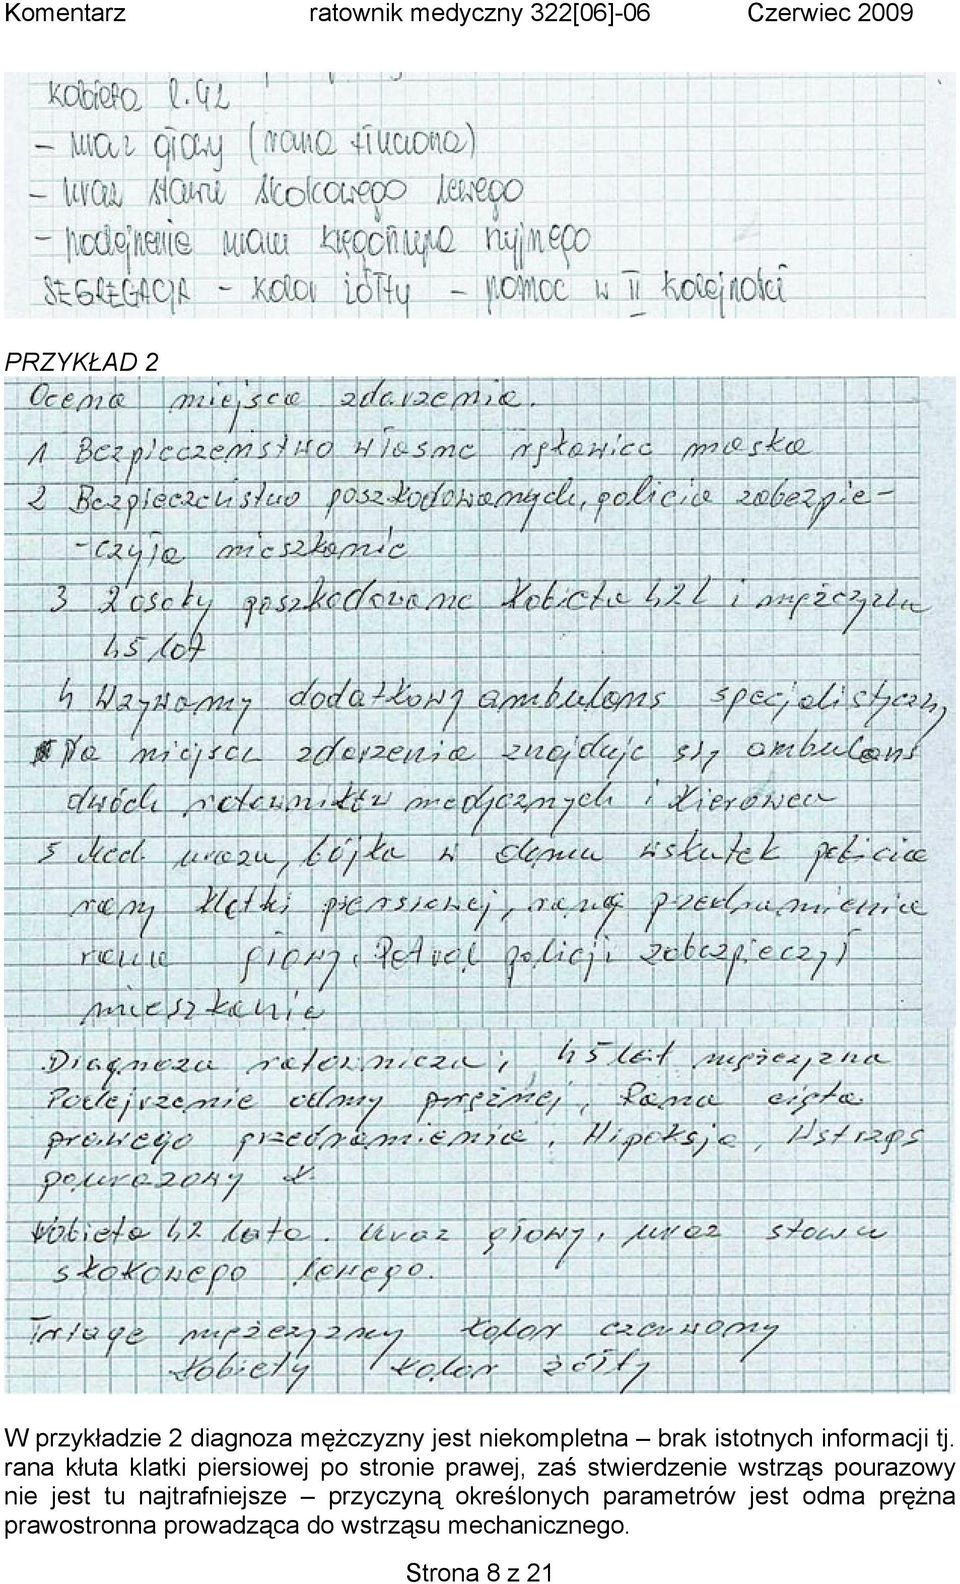 Komentarz ratownik medyczny 322[06]-06 Czerwiec 2009
kobieta l.42
- uraz głowy (rana tłuczona)
- uraz stawu skokowego lewego
- podejrzenie urazu kręgosłupa szyjnego
SEGREGACJA - kolor żółty - pomoc w II kolejności
PRZYKŁAD 2
Ocena miejsca zdarzenia.
1 Bezpieczeństwo własne rękawice maska
2 Bezpieczeństwo poszkodowanych, policja zabezpie-
-czyła mieszkanie
3 2 osoby poszkodowane kobieta 42 l i mężczyzna
45 lat
4 Wzywamy dodatkowy ambulans specjalistyczny
Na miejscu zdarzenia znajduje się ambulans
dwóch ratowników medycznych i kierowca
5 Mech. urazu, bójka w domu wskutek
rany klatki piersiowej, raną przedramienia
rana głowy. Patrol policji zabezpieczył
mieszkanie
Diagnoza ratownicza; 45 lat mężczyzna
Podejrzenie odmy prężnej, Rana cięta
prawego przedramienia. Hipoksja, Wstrząs
pourazowy
Kobieta 42 lata. Uraz głowy, uraz stawu
skokowego lewego.
Triage mężczyzny kolor czerwony
kobiety kolor żółty
W przykładzie 2 diagnoza mężczyzny jest niekompletna – brak istotnych informacji tj.
rana kłuta klatki piersiowej po stronie prawej, zaś stwierdzenie wstrząs pourazowy
nie jest tu najtrafniejsze – przyczyną określonych parametrów jest odma prężna
prawostronna prowadząca do wstrząsu mechanicznego.
Strona 8 z 21